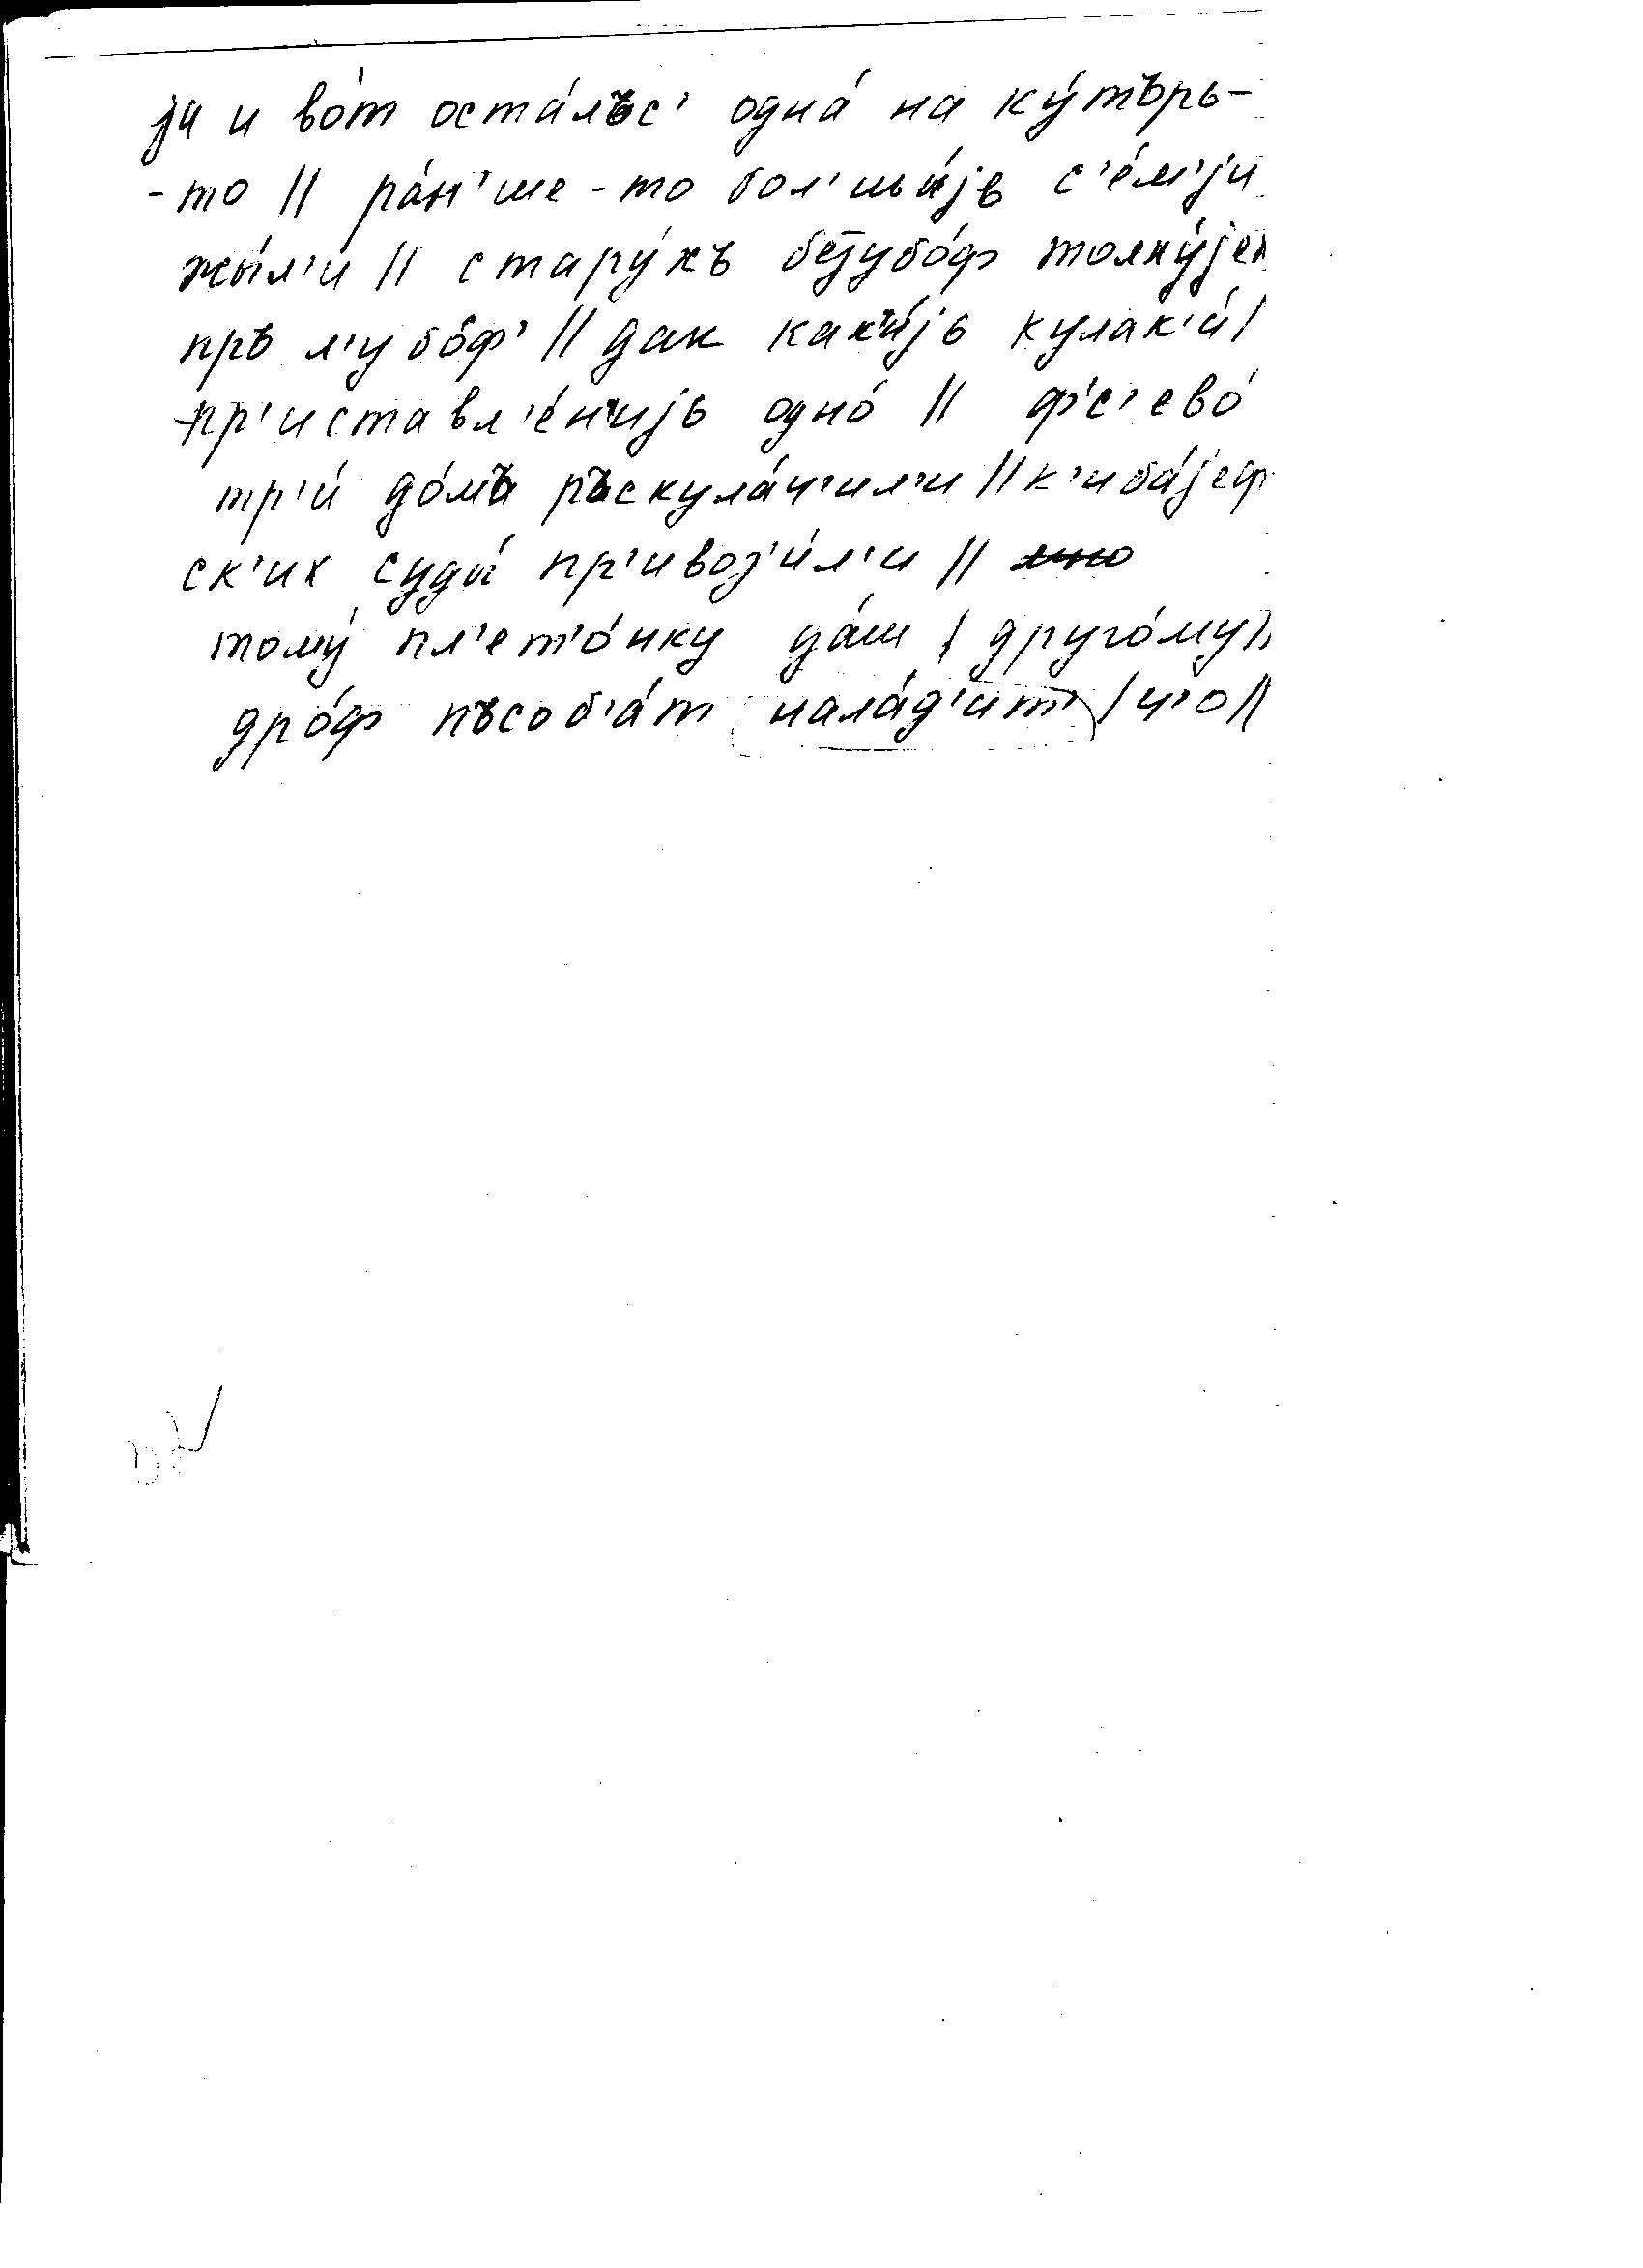 ја и во́т оста́лъс' одна́ на ку́търь-
-то || ра́н'ше-то бол'шы́јь с'е́м'ји
жы́л'и || стару́хъ беззубо́ф толку́јет
пръ л'убо́ф' || дак как'и́јь кулак'и́ |
пр'иставл'е́н'ијь одно́ || ф'с'ево́
тр'и́ до́мъ ръскула́ч'ил'и || к'иба́јеф
ск'их суды́ пр'ивоз'и́л'и ||
тому́ пл'ет'о́нку да́ш | друго́му
дро́ф пъсоб'а́т нала́д'ит' | ч'о ||